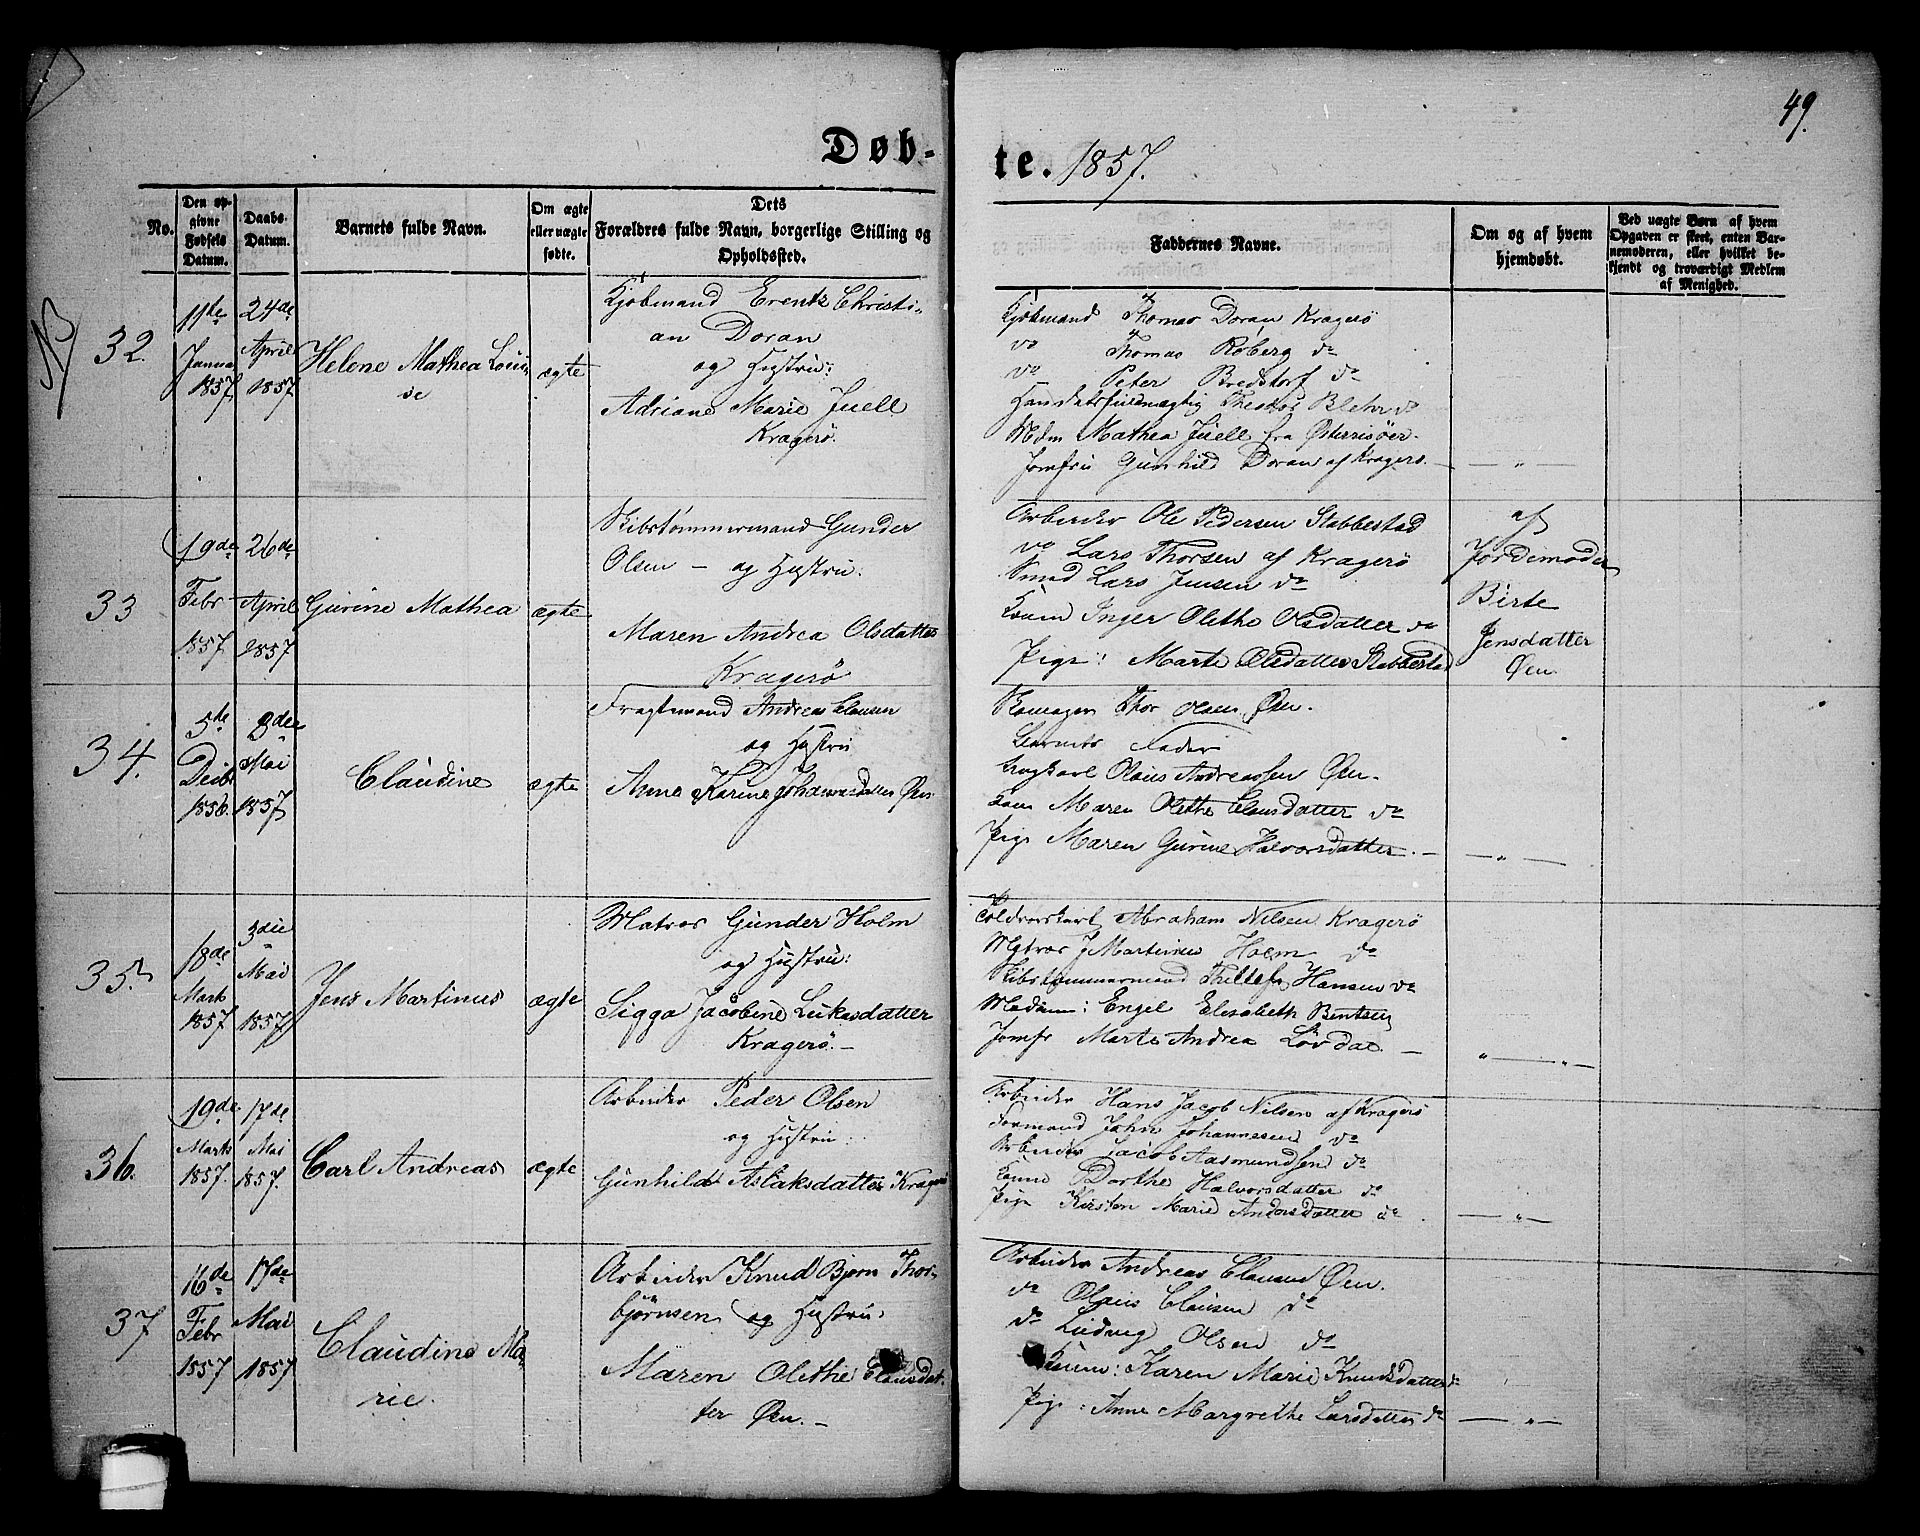 49.
Døb-
te. 1857.
No.
Den op-
givne
Fødsels
Datum.
Daabs-
Datum.
Barnets fulde Navn.
Om ægte
eller uægte
fødte.
Dets
Forældres fulde Navn, borgerlige Stilling og
Opholdssted.
Faddernes Navne.
Om og af hvem
hjemdøbt.
Ved uægte Børn af hvem
Opgaven er skeet, enten Bar-
nemoderen, eller hvilket be-
kjendt og troværdigt Medlem
af Menighed.
NB
32.
11te
Janua
1857
24de
April
1857
Helene Mathea Loui-
se
ægte
Kjøbmand Erentz Christi-
an Doran
og Hustru:
Adriane Marie Juell
Kragerö.
Kjøbmand Thomas Doran Kragerö
do Thomas Roberg do
do Peter Bredstorf do
Handelsfuldmægtig Blehr do
Mdm Mathea Juell fra Østerrisöer.
Jomfru Gunhild Doran af Kragerö. — " —
33
19de
Febr
1857.
26de
April
1857
Gurine Mathea
ægte
Skibstømmermand Gunder
Olsen — og Hustru.
Maren Andrea Olsdatter
Kragerö
Arbeider Ole Pedersen Stabbestad
do Lars Thorsen af Kragerö
Smed Lars Jensen do
Kone Inger Olethe Olsdatter do
Pige: Marte Olsdatter Stabbestad
af
Jordemoder
Birte
Jensdatter
Øen
34.
5te
Decbr
1856.
3die
Mai
1857
Claudine
ægte
Fragtmand Andreas Clausen
og Hustru
Anne Karine Johannesdatter Øen
Skomager Thor Olsen Øen.
Barnets Fader
Ungkarl Olaus Andreassen Øen.
Kone Maren Olethe Clausdatter do
Pige Maren Gurine Halvorsdatter. — " —
35.
18de
Marts
1857
3die
Mai
1857
Jens Martinus
ægte
Matros Gunder Holm
og Hustru:
Sigga Jacobine Lukasdatter
Kragerö. —
Abraham Nilsen Kragerö
Matros J Martinus Holm do
Skibstømmermand Thillef Hansen do
Madam: Engel Elisabeth Bentsen
Jomfr Marte Andrea Lövdal. — " — "
36.
19de
Marts
1857.
17de
Mai
1857.
Carl Andreas
ægte
Arbeider Peder Olsen
og Hustru:
Gunhild Aslaksdatter Kragerö
Arbeider Hans Jacob Nilsen af Kragerö
Formand John Johannesen do
Arbeider Jacob Aasmundsen do
Kone Dorthe Halvorsdatter do
Pige Kirsten Marie Andersdatter do. — " —
37
16de
Febr
1857
17de
Mai
1857
Claudine Ma-
rie.
ægte
Arbeider Knud Bjørn Thor-
bjørnsen og Hustru:
Maren Olethe Clausdat-
ter Øen. —
Arbeider Andreas Clausen Øen.
do Olaus Clausen do
do Ludvig Olsen do
Kone: Karen Marie Knudsdatter do
Pige: Anne Margrethe Larsdatter do — " —